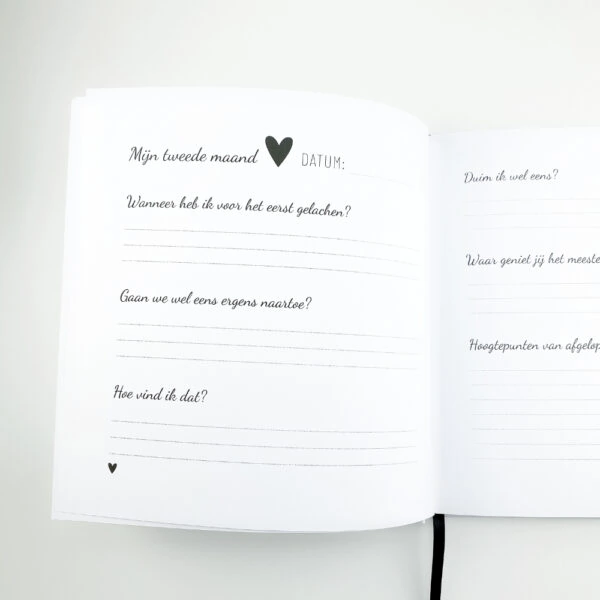 Mijn tweede maand DATUM:
Wanneer heb ik voor het eerst gelachen?
Gaan we wel eens ergens naartoe?
Hoe vind ik dat?
Duim ik wel eens?
Waar geniet jij het meeste
Hoogtepunten van afgelop